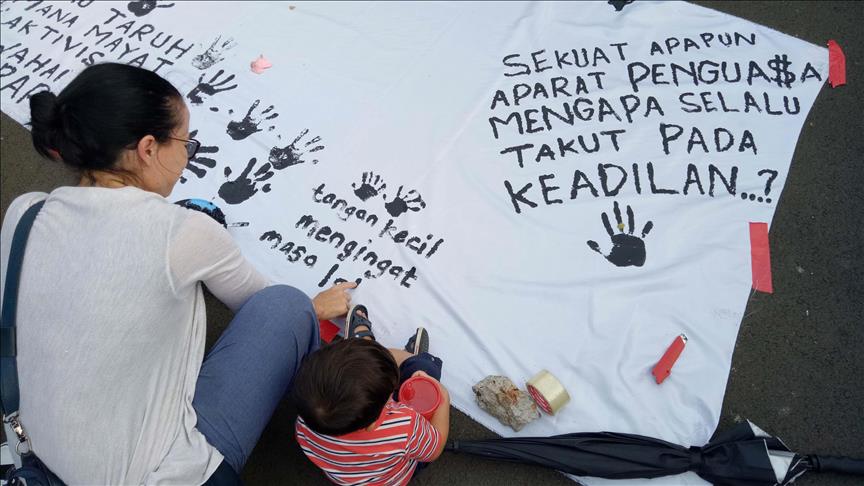 TARUH
MANA MAYAT
AKTIVIS
WAHAI
SEKUAT APAPUN
APARAT PENGUA$A
MENGAPA SELALU
TAKUT PADA
KEADILAN...?
tangan kecil
mengingat
masa